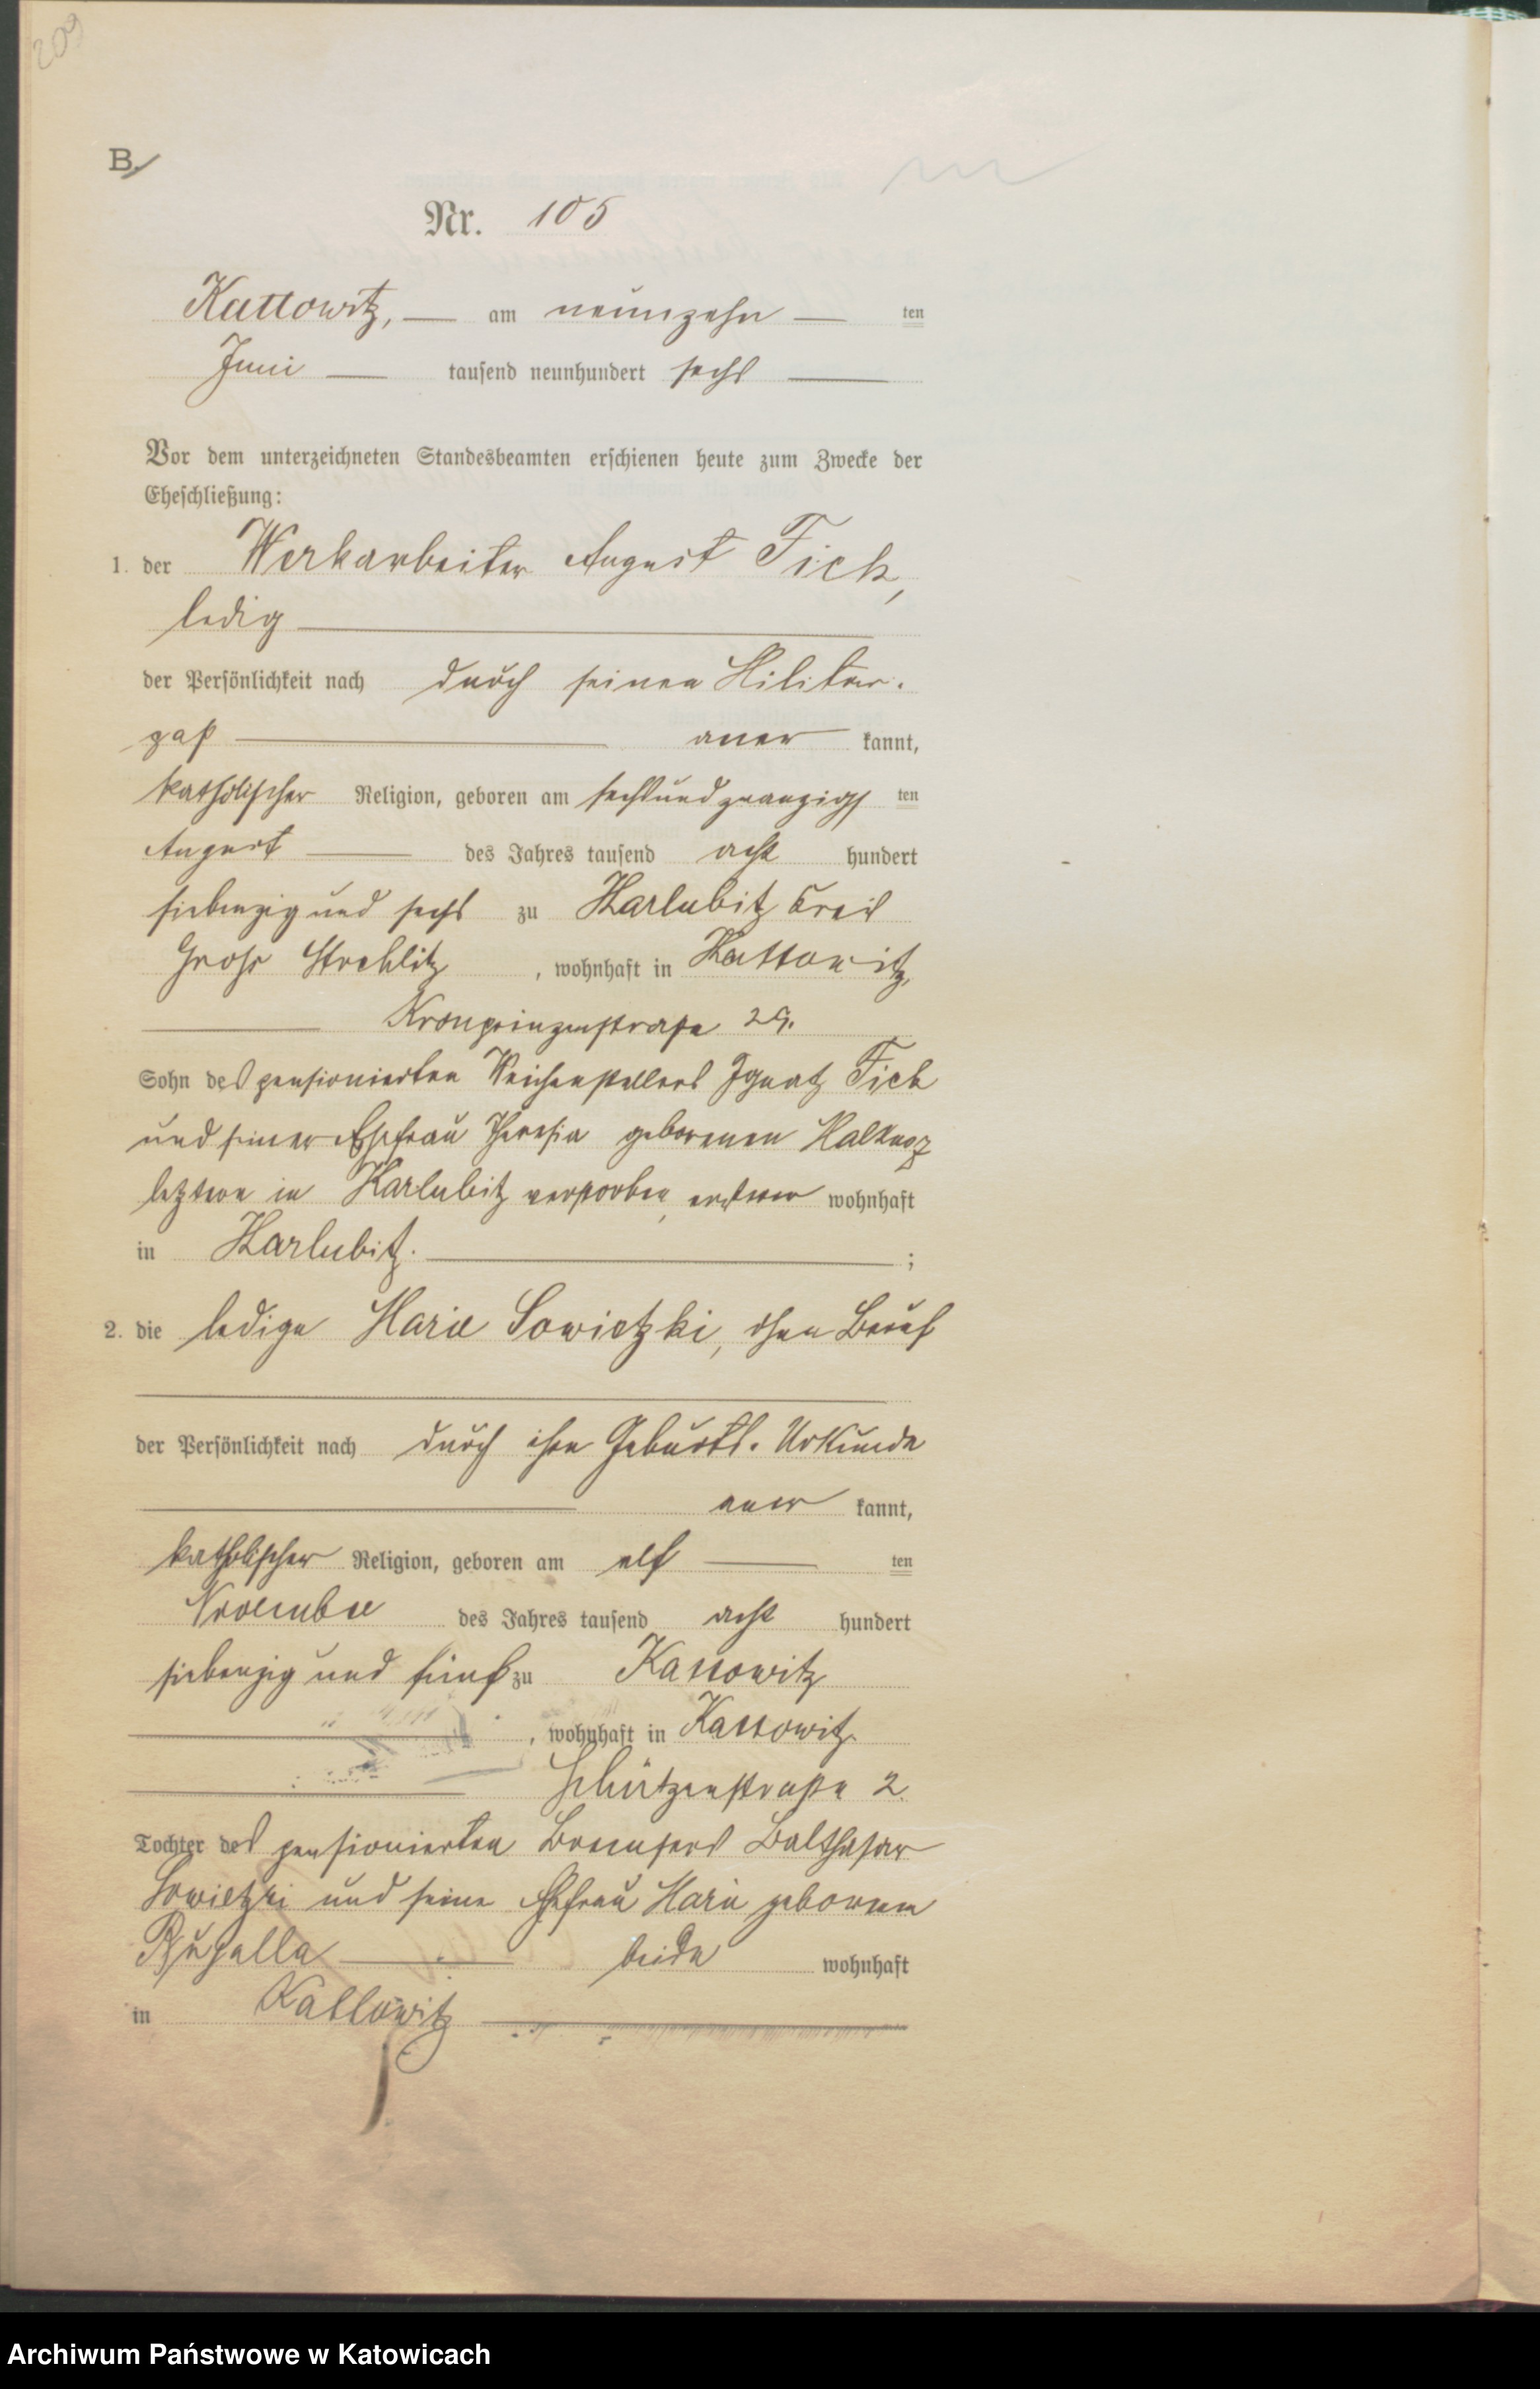 209
B.
Nr. 105
Kattowitz, am neunzehn ten
Juni tausend neunhundert sechs
Vor dem unterzeichneten Standesbeamten erschienen heute zum Zwecke der
Eheschließung:
1. der Werkarbeiter August Fick,
ledig
der Persönlichkeit nach durch seinen Militär-
paß aner kannt,
katholischer Religion, geboren am sechsundzwanzigs ten
August des Jahres tausend acht hundert
siebenzig und sechs zu Karlubitz Kreis
Gross Strehlitz, wohnhaft in Kattowitz,
Kronprinzenstraße 29.
Sohn des pensionierten Weichenstellers Ignatz Fick
und seiner Ehefrau Theresia geborenen
letztere in Karlubitz verstorben, ersterer wohnhaft
in Karlubitz. ;
2. die ledige Marie Sowietzki, ohne Beruf
der Persönlichkeit nach durch ihre Geburts-Urkunde
aner kannt,
katholischer Religion, geboren am elf ten
November des Jahres tausend acht hundert
siebenzig und fünf zu Kattowitz
, wohnhaft in Kattowitz
Schützenstraße 2
Tochter des pensionierten Bremsers Balthasar
Sowietzki und seine Ehefrau Marie geborene
beide wohnhaft
in Kattowitz
Archiwum Państwowe w Katowicach